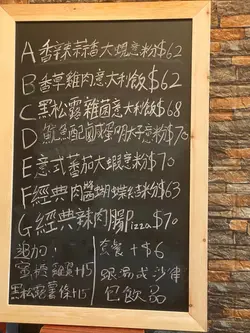 A 香辣蒜香大蜆意粉 $62
B 香草雞肉意大利飯 $62
C 黑松露雜菌意大利飯 $68
D 魷魚配鹹蛋明太子意粉 $70
E 意式番茄大蝦意粉 $70
F 經典肉醬蝴蝶結意粉 $63
G 經典辣肉腸Pizza $70
追加:
雞翼 +15
黑松露薯條 +15
套餐 + $6
餐湯或沙律
包飲品